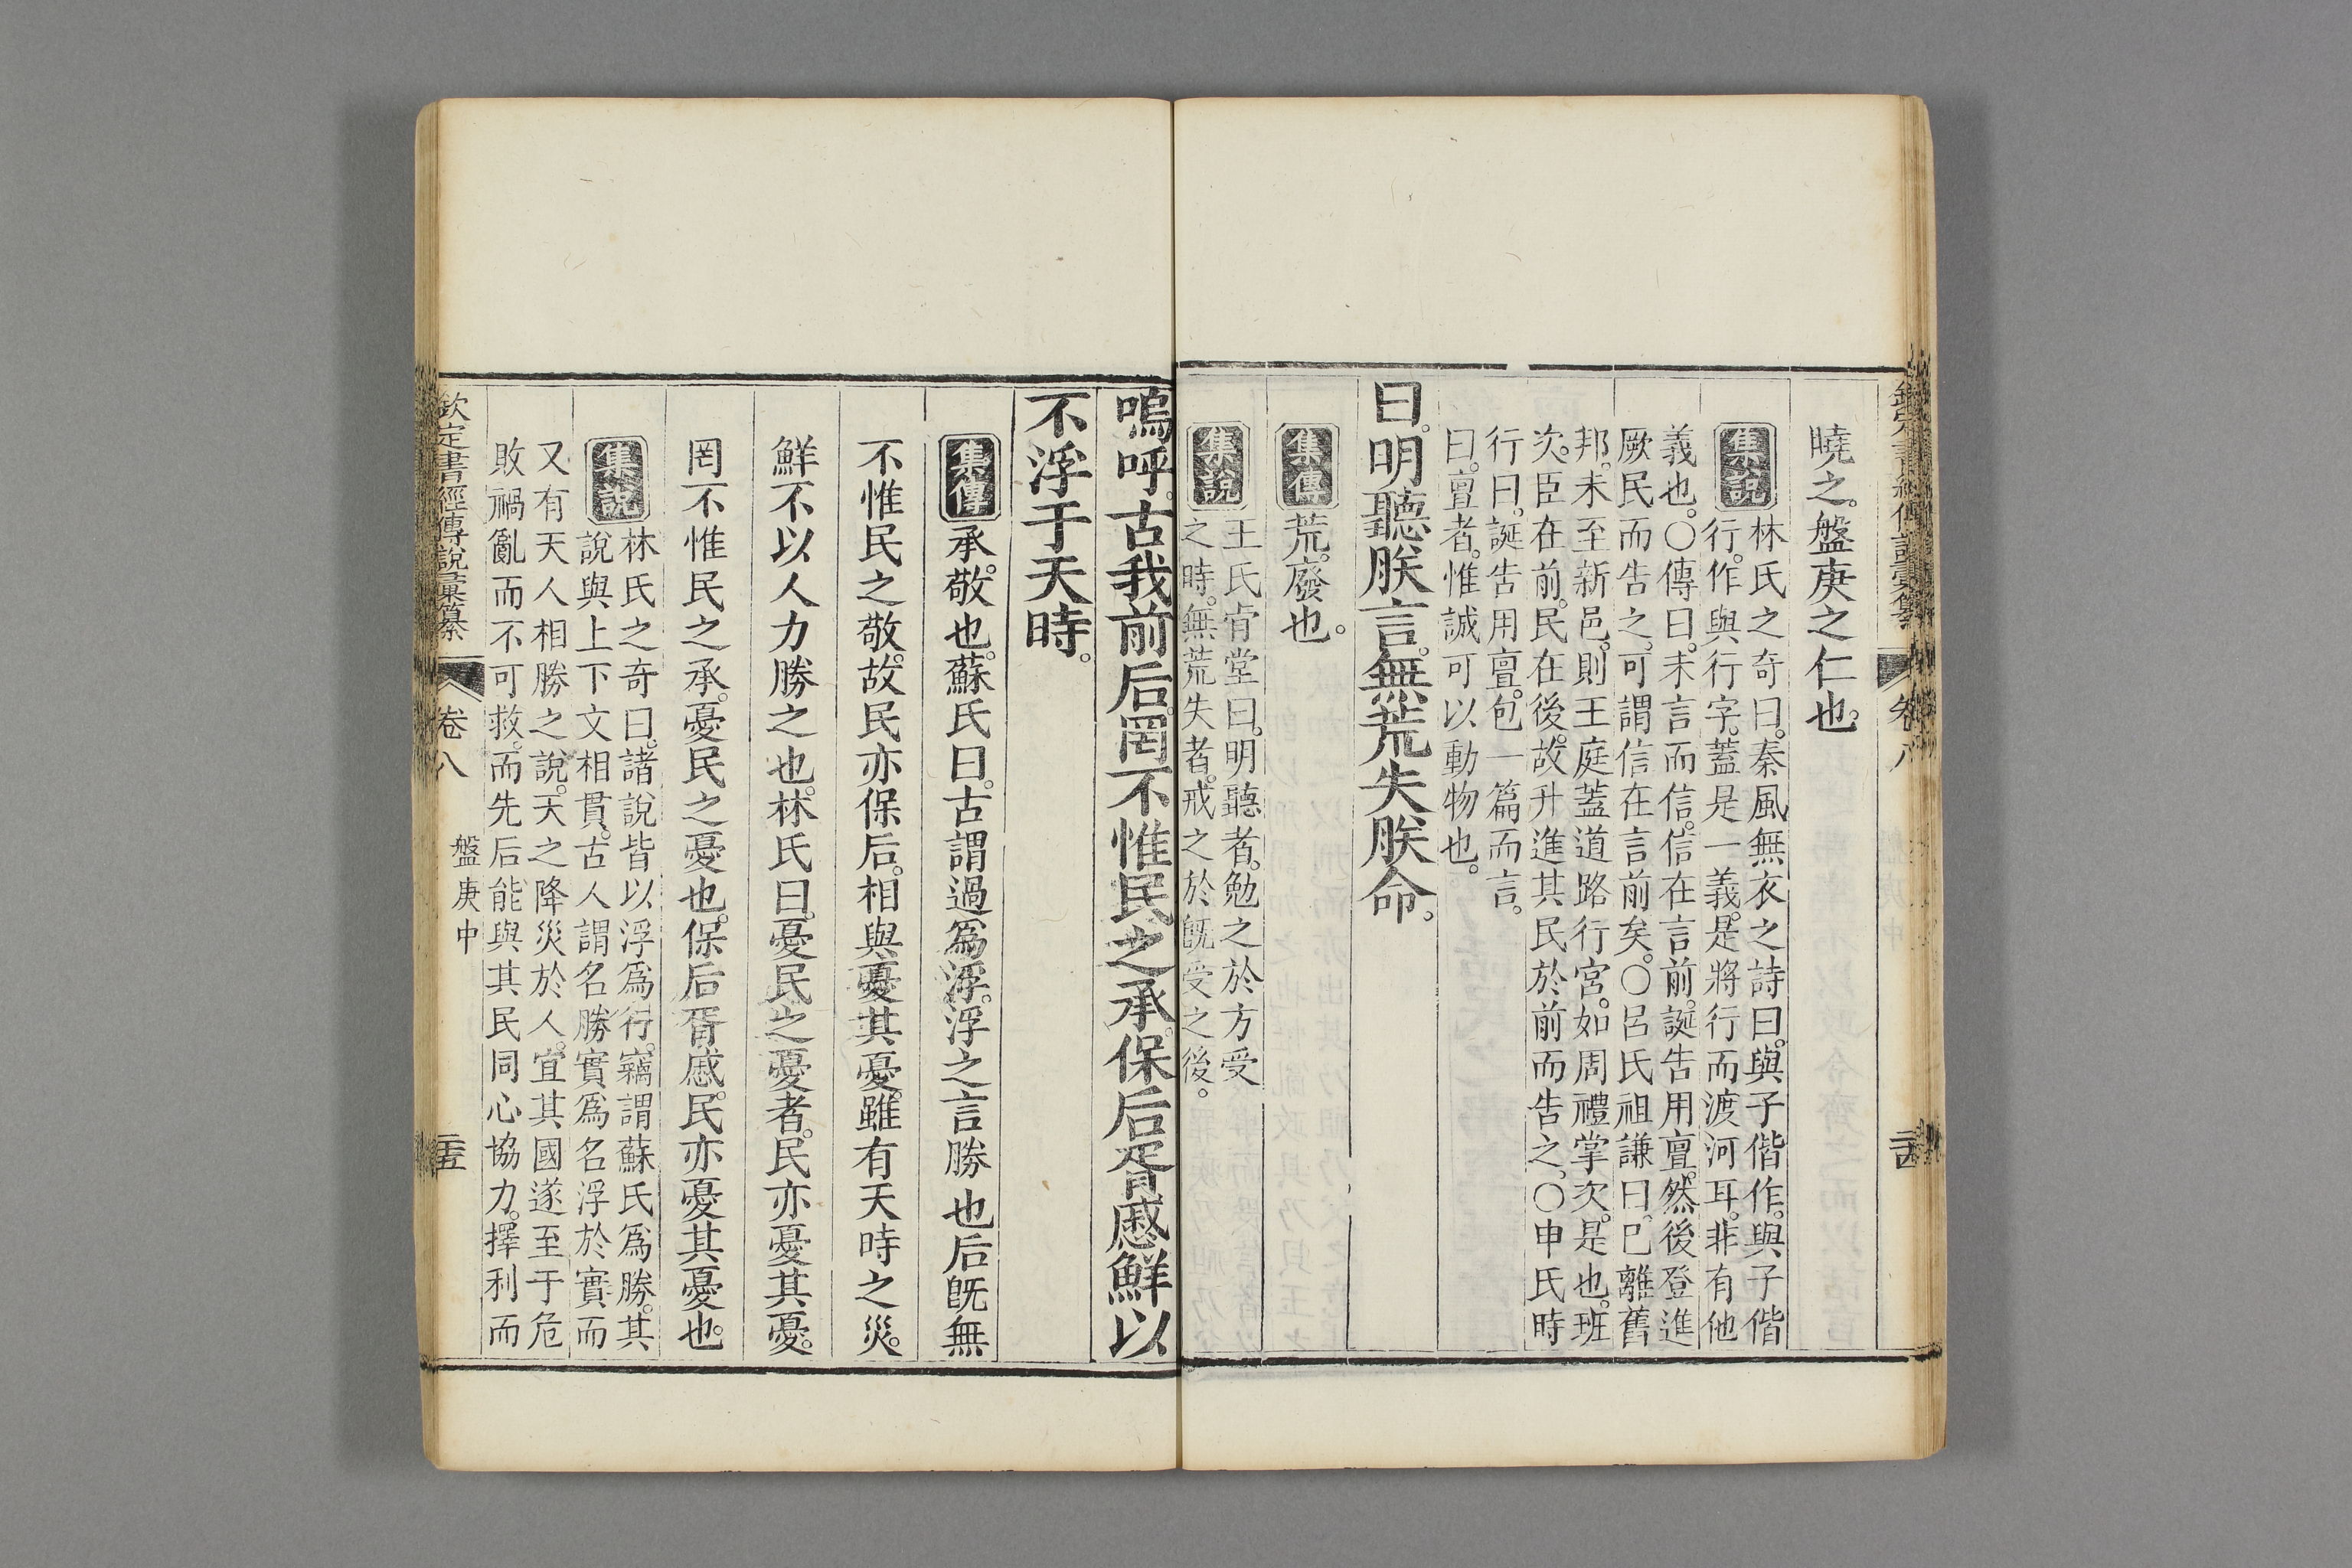 曉之。盤庚之仁也。
集說
林氏之奇曰。秦風無衣之詩曰。與子偕作。與子偕
行。作與行字。蓋是一義。是將行而渡河耳。非有他
義也。〇傳曰。未言而信。信在言前。誕告用亶。然後登進
厥民而告之。可謂信在言前矣。〇呂氏祖謙曰。已離舊
邦。未至新邑。則王庭蓋道路行宮。如周禮掌次。是也。班
次。臣在前。民在後。故升進其民於前而告之。〇申氏時
行曰。誕告用亶。包一篇而言。
曰。亶者。惟誠可以動物也。
曰。明聽朕言。無荒失朕命。
集傳
荒。廢也。
集說
王氏肯堂曰。明聽者。勉之於方受
之時。無荒失者。戒之於旣受之後。
卷八
嗚呼。古我前后。罔不惟民之承。保后胥慼。鮮以
不浮于天時。
集傳
承。敬也。蘇氏曰。古謂過爲浮。浮之言勝也。后旣無
不惟民之敬。故民亦保后。相與憂其憂。雖有天時之災。
鮮不以人力勝之也。林氏曰。憂民之憂者。民亦憂其憂。
罔不惟民之承。憂民之憂也。保后胥慼。民亦憂其憂也。
集說
林氏之奇曰。諸說皆以浮爲行。竊謂蘇氏爲勝。其
說與上下文相貫。古人謂名勝實爲名浮於實。而
又有天人相勝之說。天之降災於人。宜其國遂至于危
敗禍亂而不可救。而先后能與其民同心協力。擇利而
欽定書經傳說彙纂
卷八
盤庚中
二十五